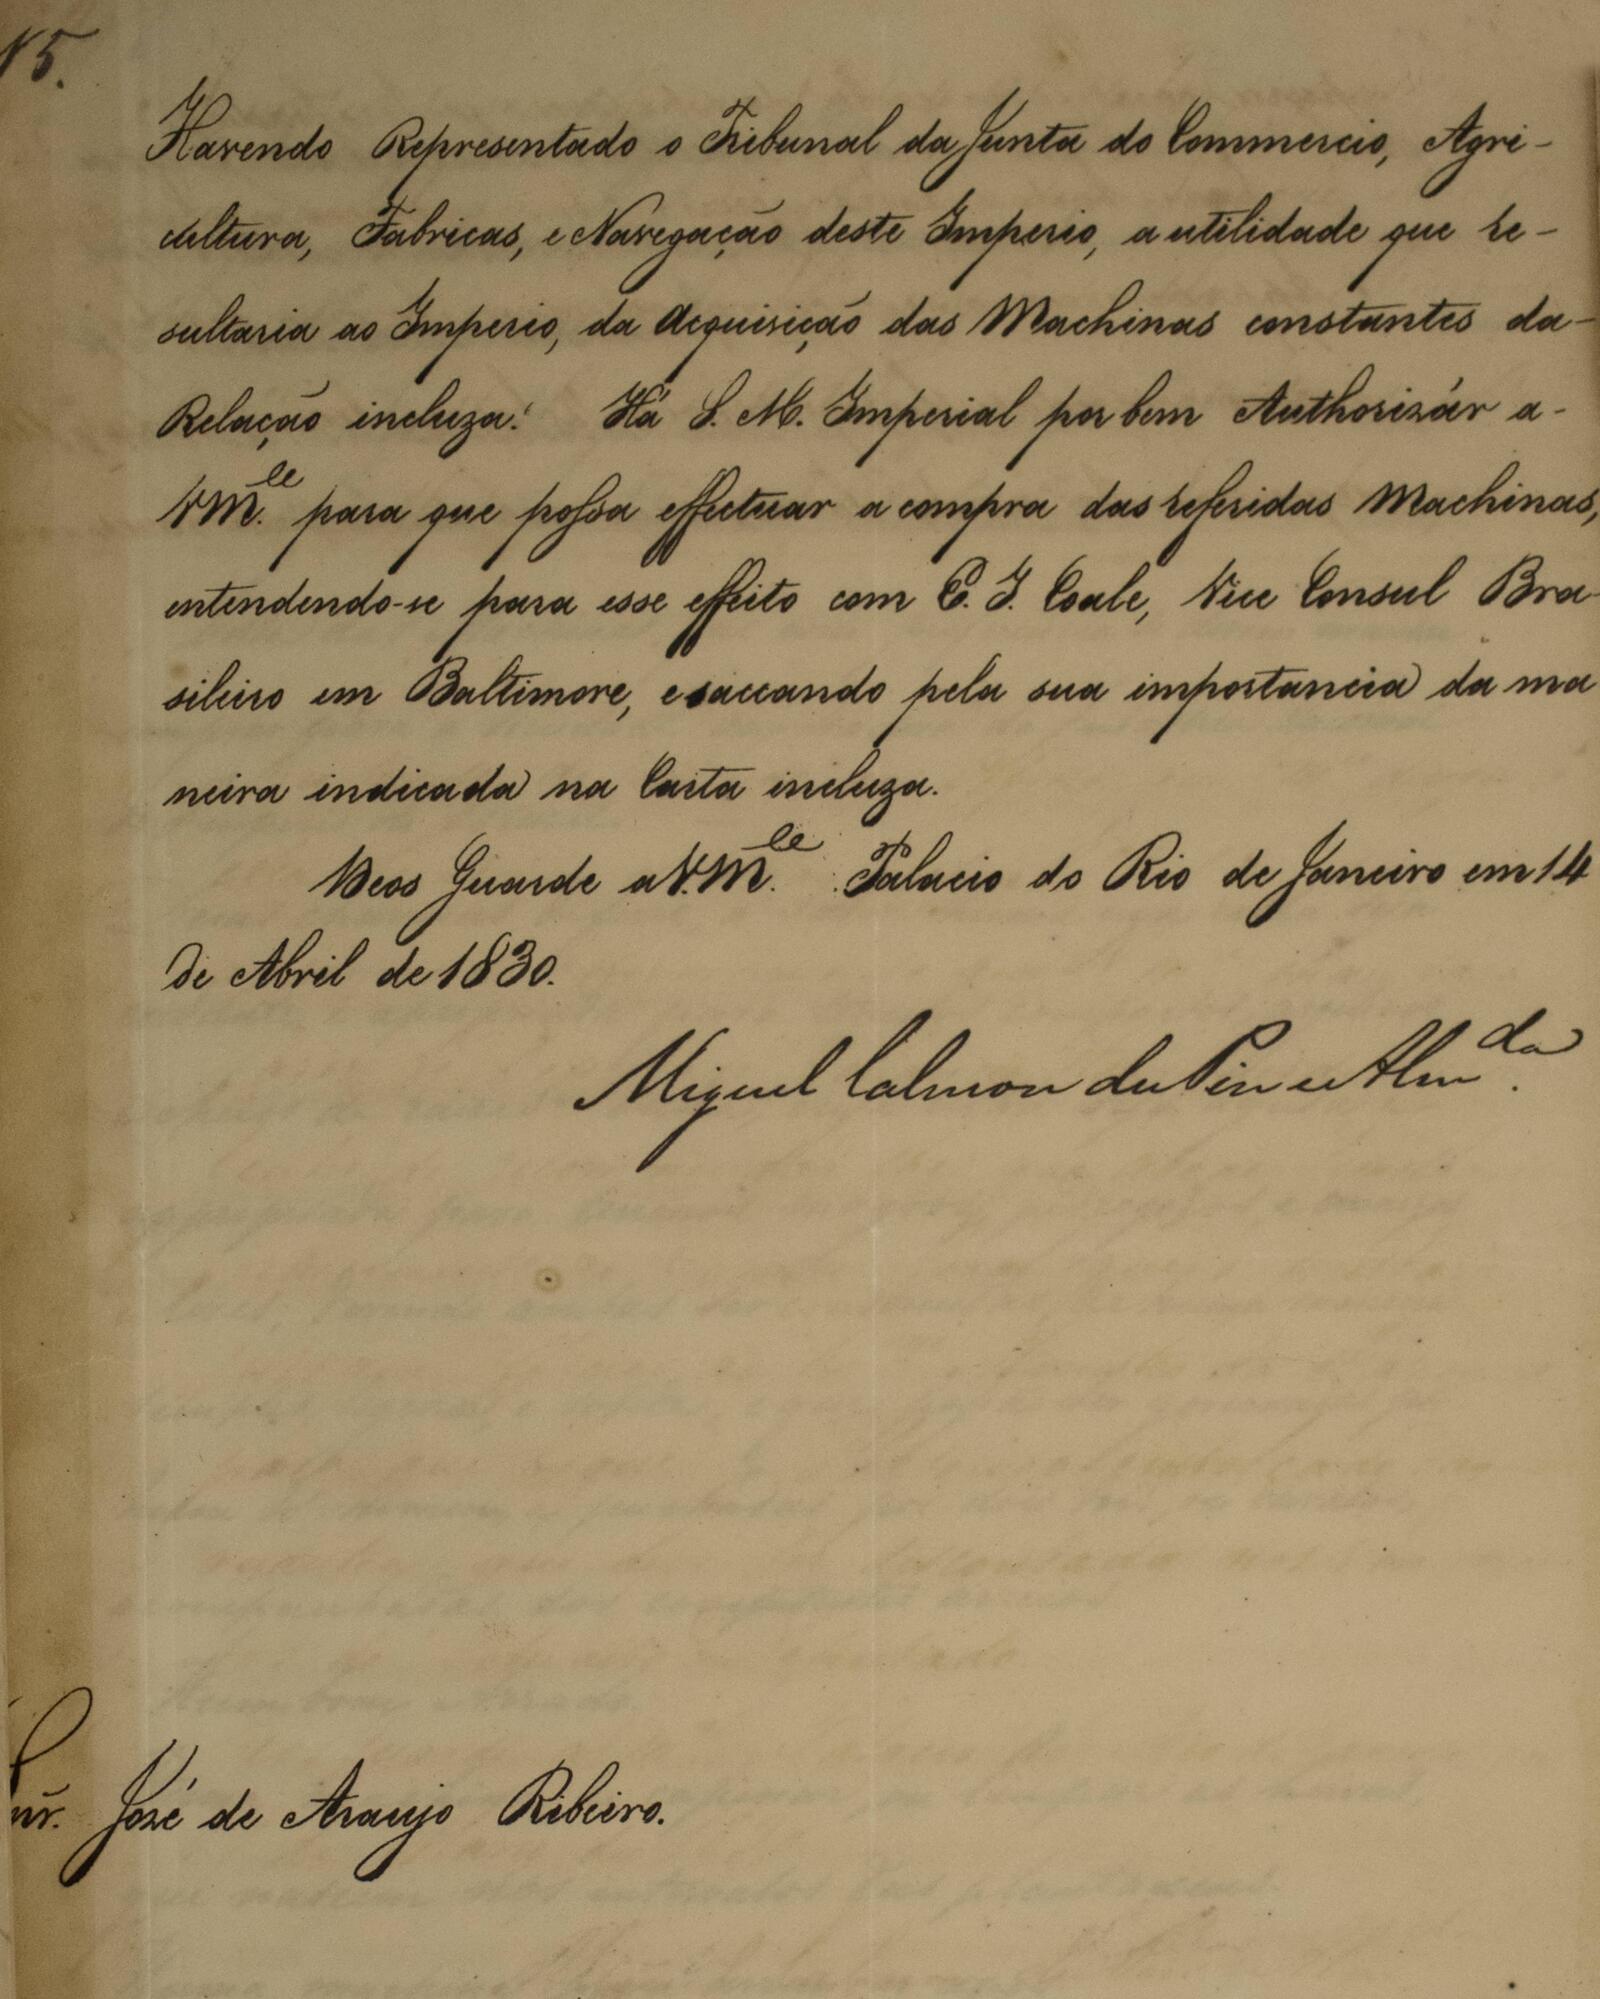 N 5.
Havendo Representado o Tribunal da Junta do Commercio, Agri-
cultura, Fabricas, e Navegação deste Imperio, a utilidade que re-
sultaria ao Imperio, da Acquisição das Machinas constantes da-
Relação incluza: Há S. M. Imperial por bem Authorizár a-
V.M.ce para que possa effectuar a compra das referidas Machinas,
entendendo-se para esse effeito com E. J. Coale, Vice Consul Bra-
sileiro em Baltimore, e saccando pela sua importancia da ma
neira indicada na Carta incluza.
Deos Guarde a V.M.ce Palacio do Rio de Janeiro em 14
de Abril de 1830.
Miguel Calmon du Pin e Alm.da
Snr. José de Araujo Ribeiro.